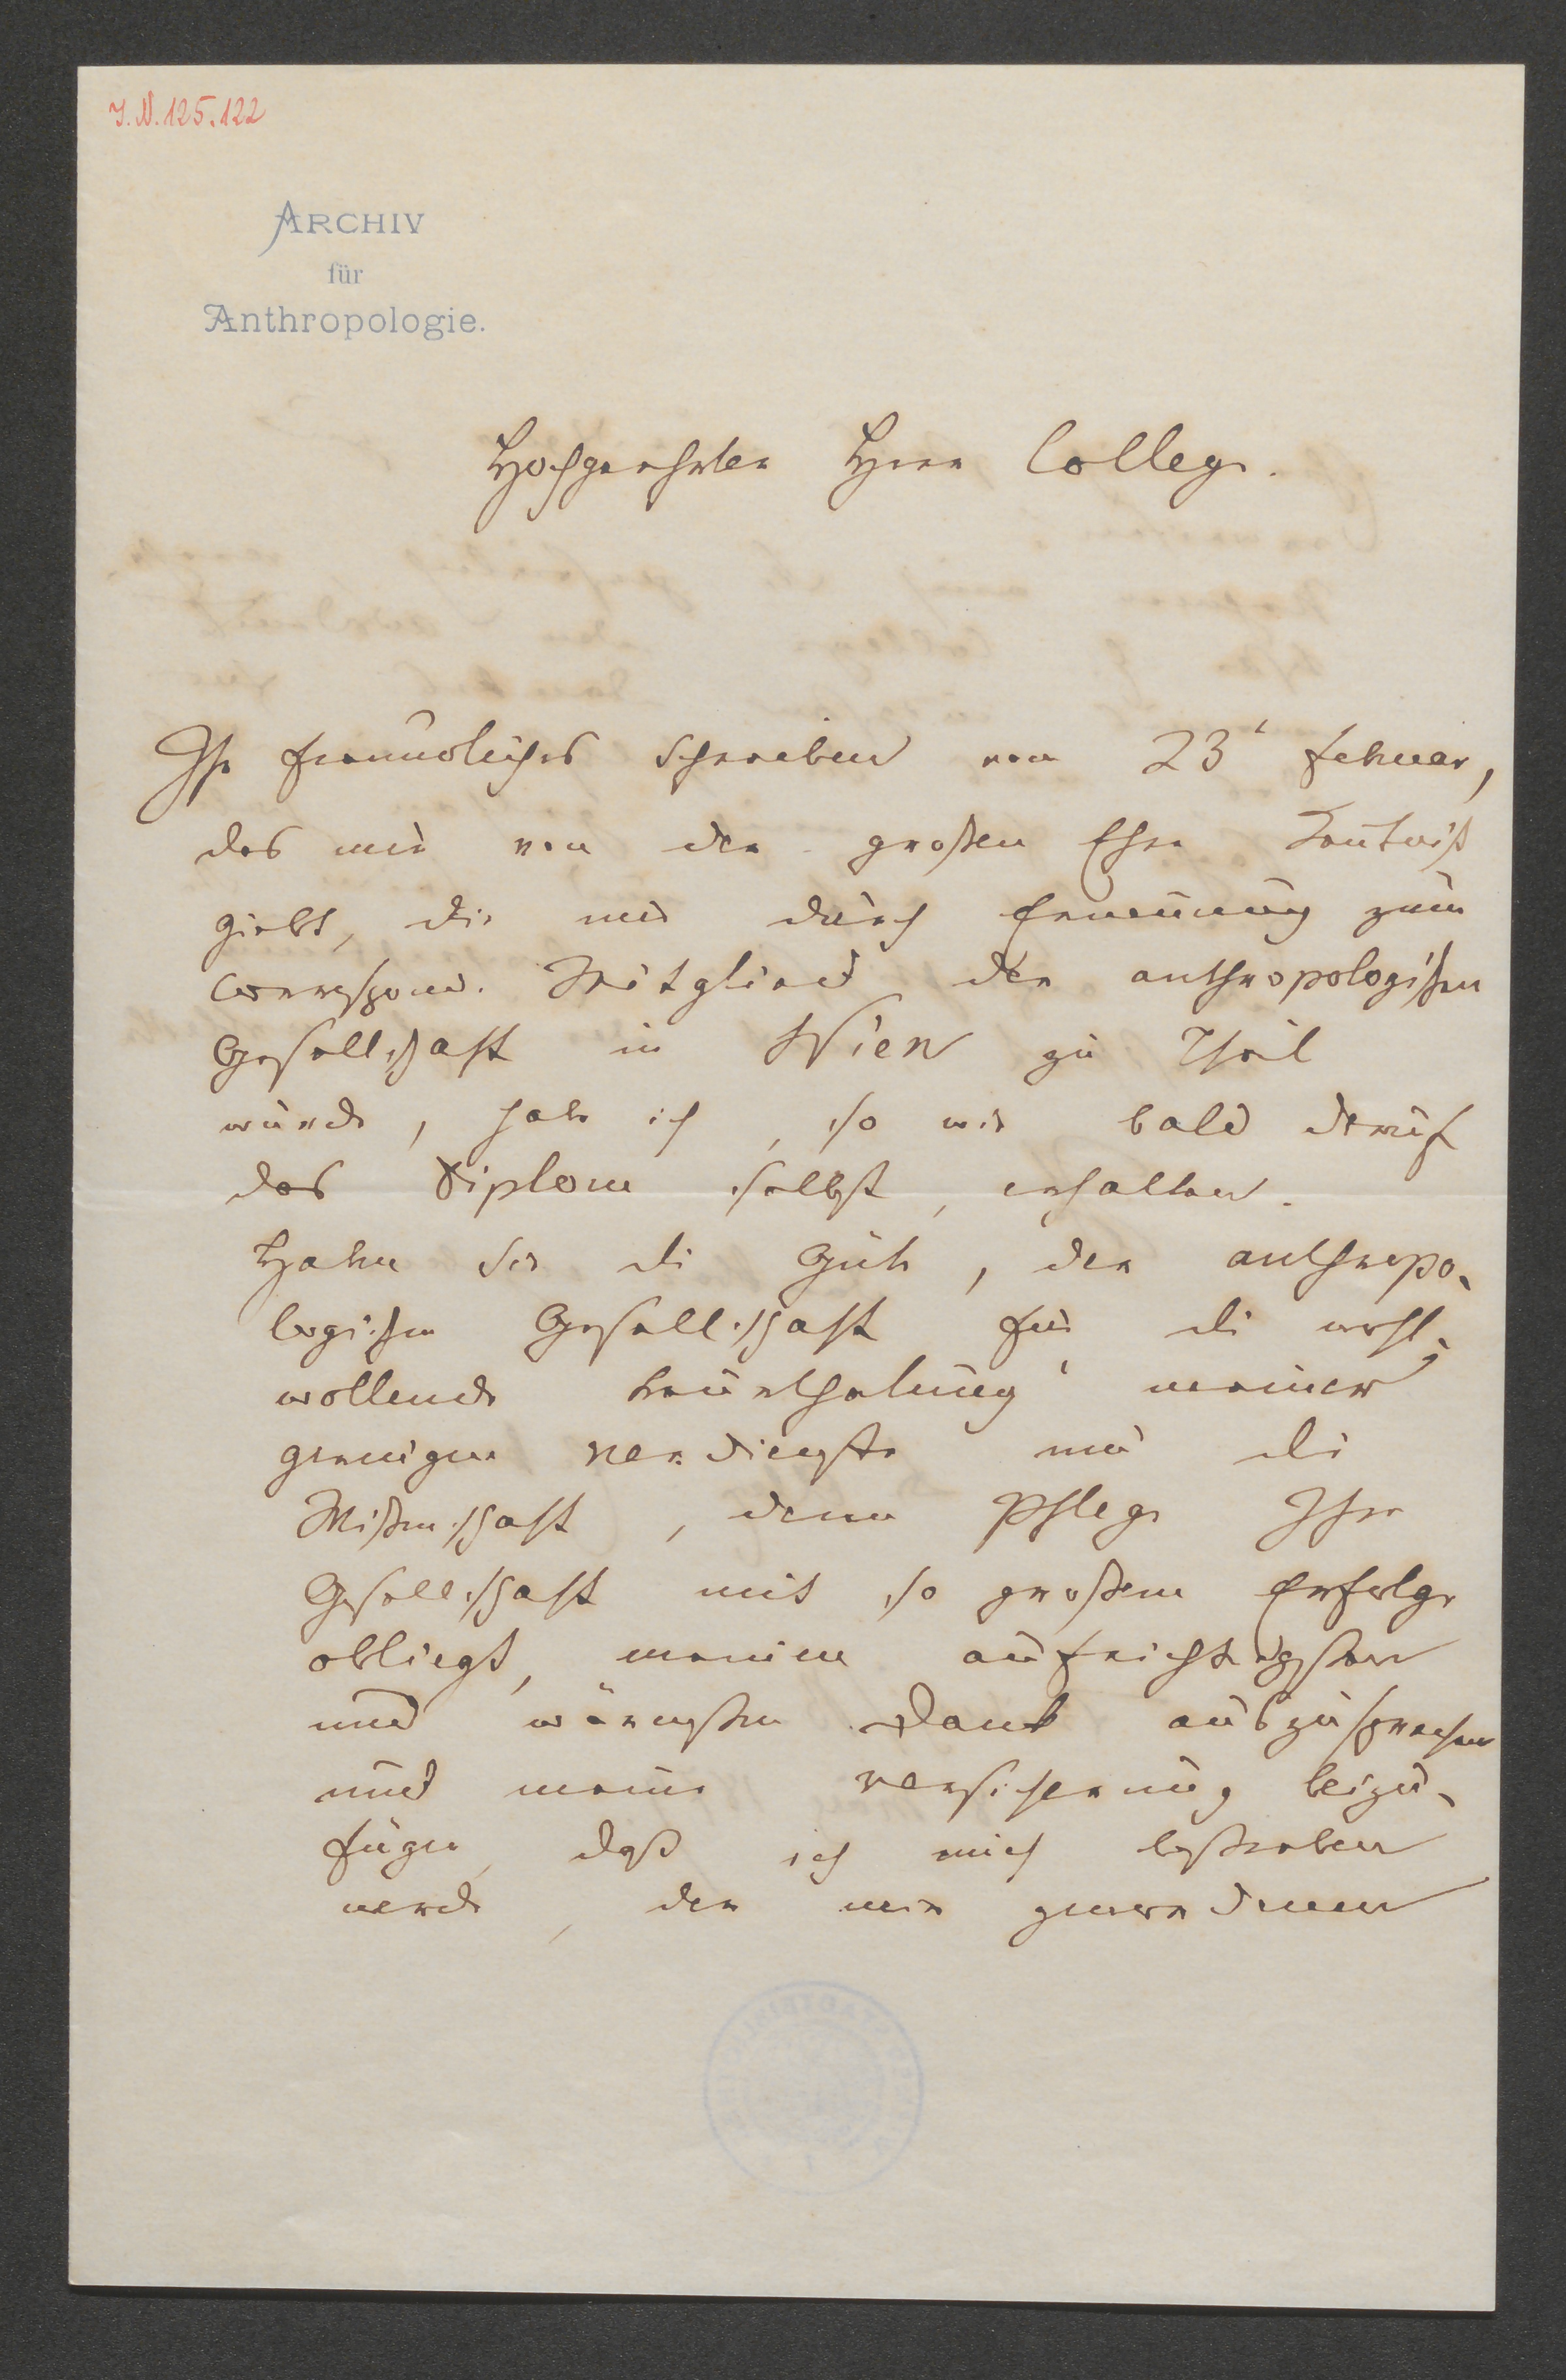 I.N. 125.122
ARCHIV
für
Anthropologie.
Hochgeehrter Herr College.
Ihr freundliches Schreiben vom 23t Februar,
das mir von der großen Ehre Kentniß
giebt, die mir durch Ernennung zum
correspond. Mitglied der anthropologischen
Gesellschaft in Wien zu Theil
wurde, habe ich, so wie bald darauf
das Diplom selbst, erhalten.
Haben Sie die Güte, der anthropo-
logischen Gesellschaft für die wohl-
wollende Beurtheilung meiner
geringen Verdienste um die
Wißenschaft, deren Pflege Ihre
Gesellschaft mit so großem Erfolge
obliegt, meinen aufrichtigsten
und wärmsten Dank auszusprechen
und meine Versicherung beizu-
fügen, daß ich mich bestreben
werde, der mir gewordenen